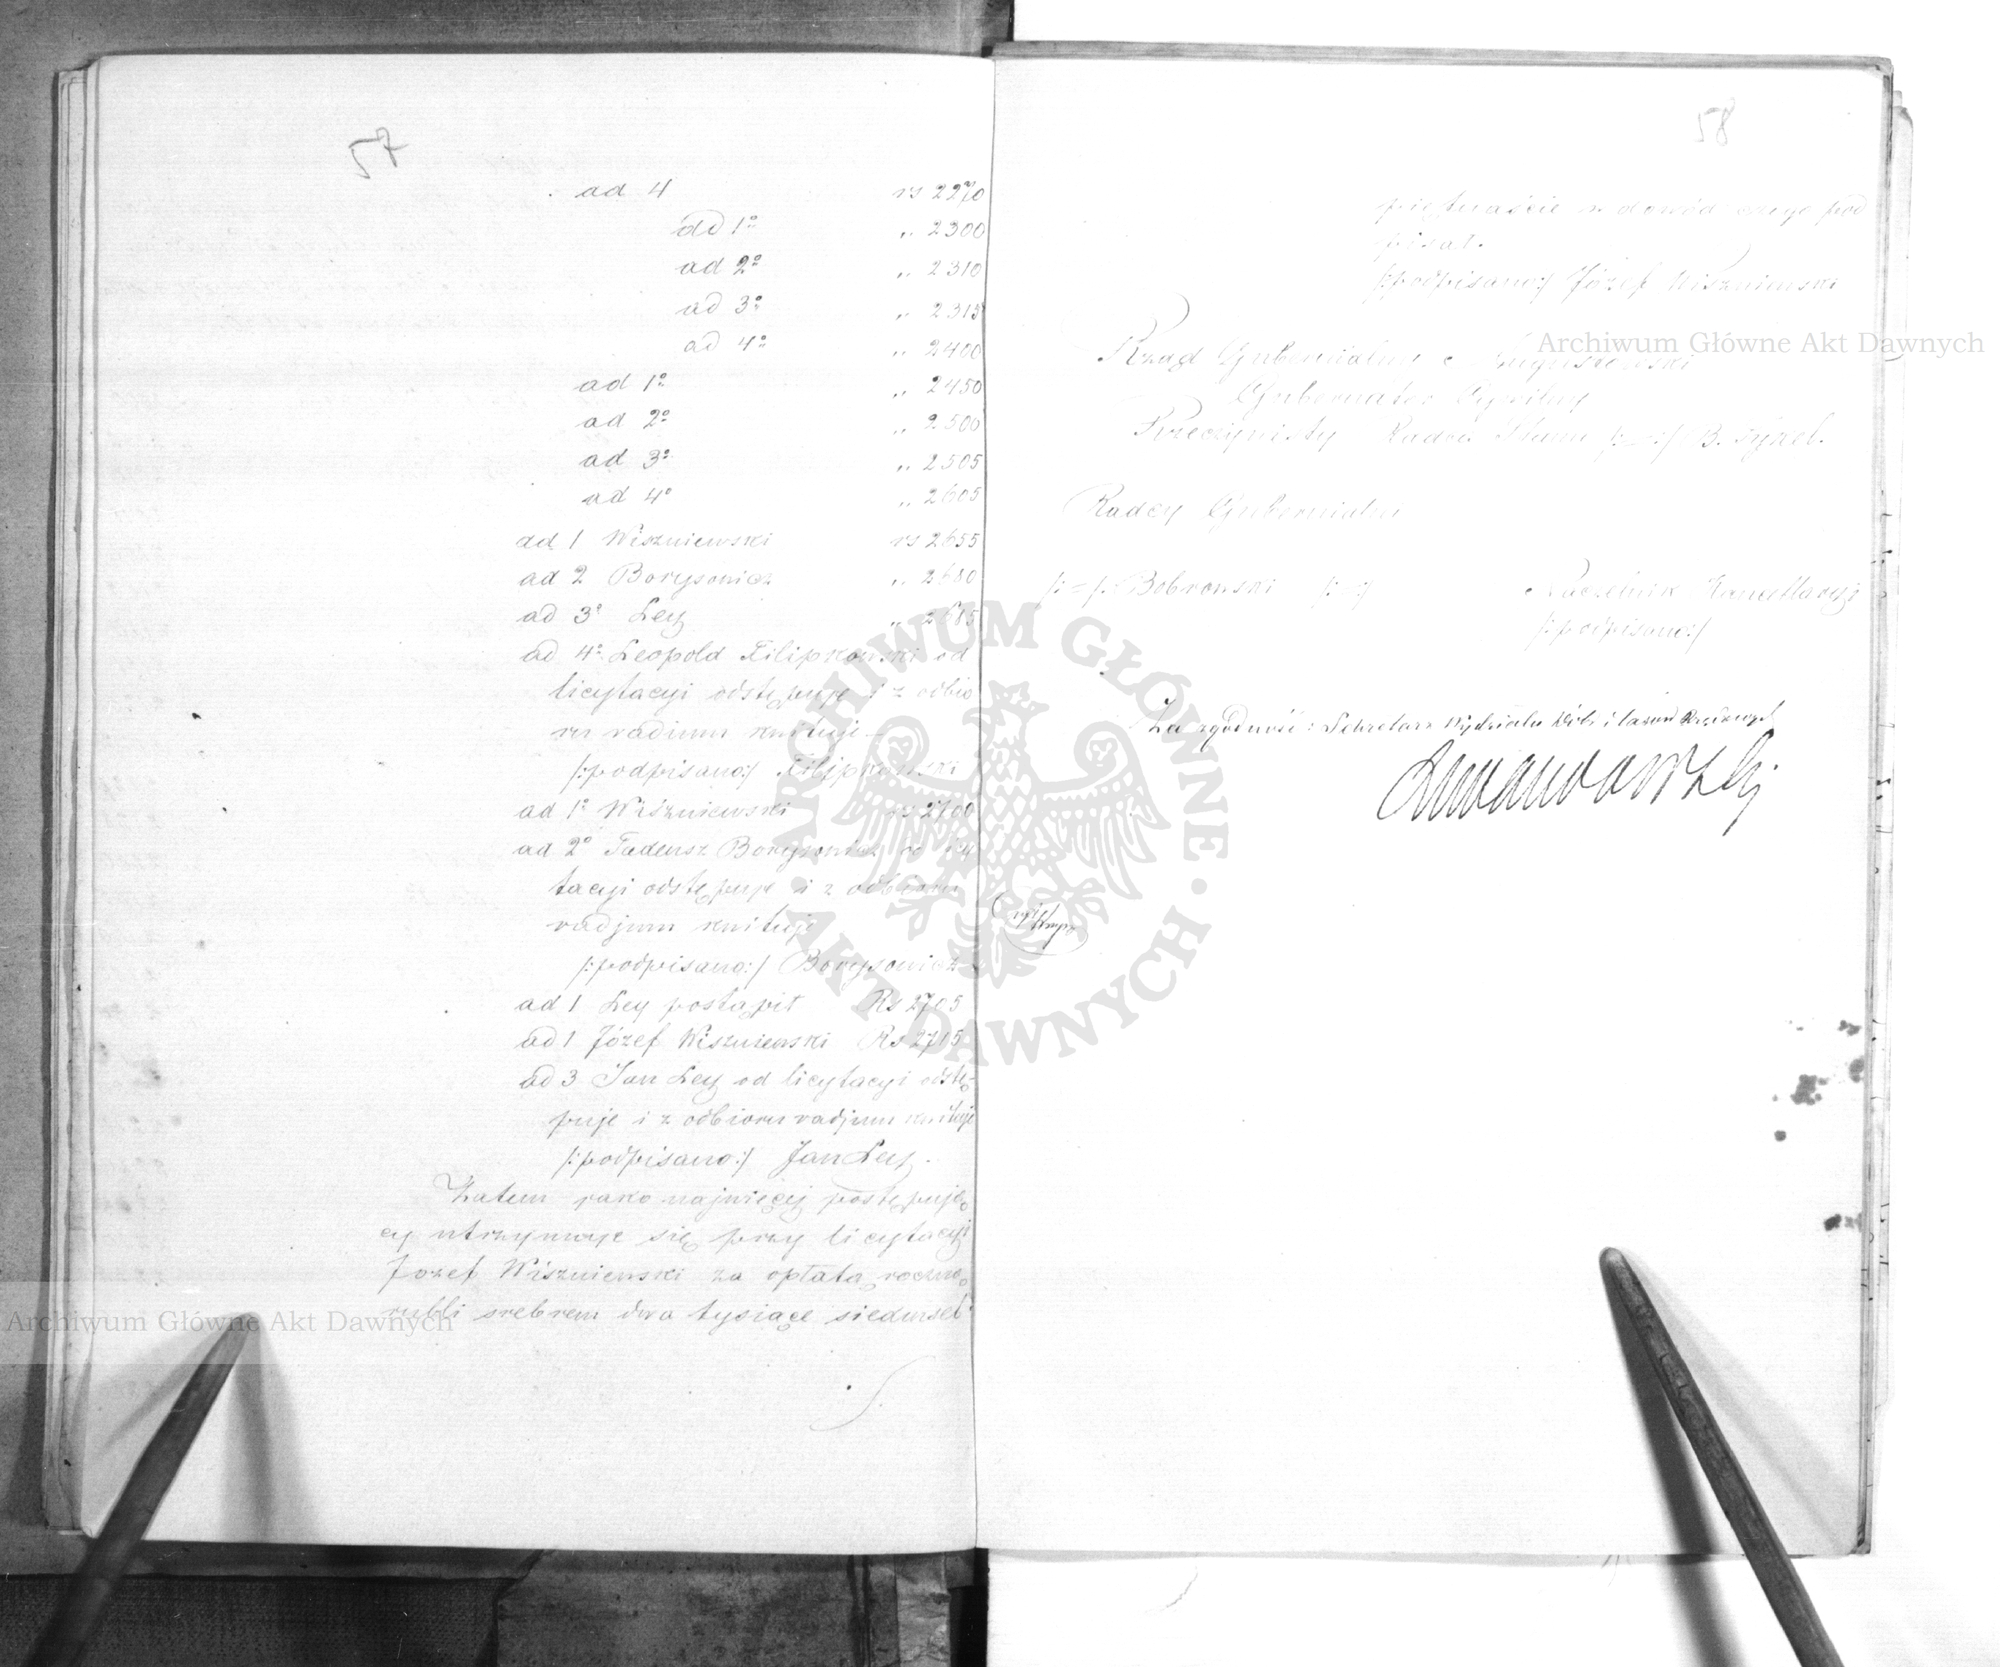 57
ad 4 rs 2270
ad 1º „ 2300
ad 2º „ 2310
ad 3º „ 2315
ad 4º „ 2400
ad 1º „ 2450
ad 2º „ 2500
ad 3º „ 2505
ad 4º „ 2605
ad 1 Wiszniewski rs 2655
ad 2 Borysowicz „ 2680
ad 3º Ley „ 2685
ad 4º Leopold Filipkowski od
licytacyi odstępuje i z odbio
ru vadium kwituje
/:podpisano:/ Filipkowski
ad 1º Wiszniewski rs 2700
ad 2º Tadeusz Borysowicz od licy
tacyi odstępuje i z odbioru
vadjum kwituje
/:podpisano:/ Borysowicz
ad 1 Ley postąpił Rs 2705
ad 1 Józef Wiszniewski Rs 2715
ad 3 Jan Ley od licytacyi odstę-
puje i z odbioru vadjum kwituje
/:podpisano:/ Jan Ley.
Zatem jako najwięcej postępują
cy utrzymuje się przy licytacyi
Józef Wiszniewski za opłatą roczną
rubli srebrem dwa tysiące siedmset
58
piętnaście w dowód czego pod
pisał.
/:podpisano:/ Józef Wiszniewski
Rząd Gubernialny Augustowski
Gubernator Cywilny
Rzeczywisty Radca Stanu
Radcy Gubernialni
Bobrowski
Naczelnik Kancellaryi
/:podpisano:/
Za zgodność: Sekretarz Wydziału Dóbr i Lasów Rządowych
Archiwum Główne Akt Dawnych
Archiwum Główne Akt Dawnych
ARCHIWUM GŁÓWNE AKT DAWNYCH